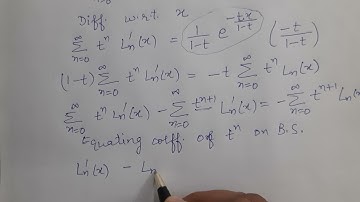 n=0
Diff. w.r.t. x
∞ Σ n=0 tⁿ Lₙ'(x) = 1/(1-t) e^(-tx/(1-t)) (-t/(1-t))
(1-t) ∞ Σ n=0 tⁿ Lₙ'(x) = -t ∞ Σ n=0 tⁿ Lₙ(x)
∞ Σ n=0 tⁿ Lₙ'(x) - ∞ Σ n=0 tⁿ⁺¹ Lₙ'(x) = - ∞ Σ n=0 tⁿ⁺¹ Lₙ(x)
Equating coeff. of tⁿ on B.S.
Lₙ'(x) - Lₙ